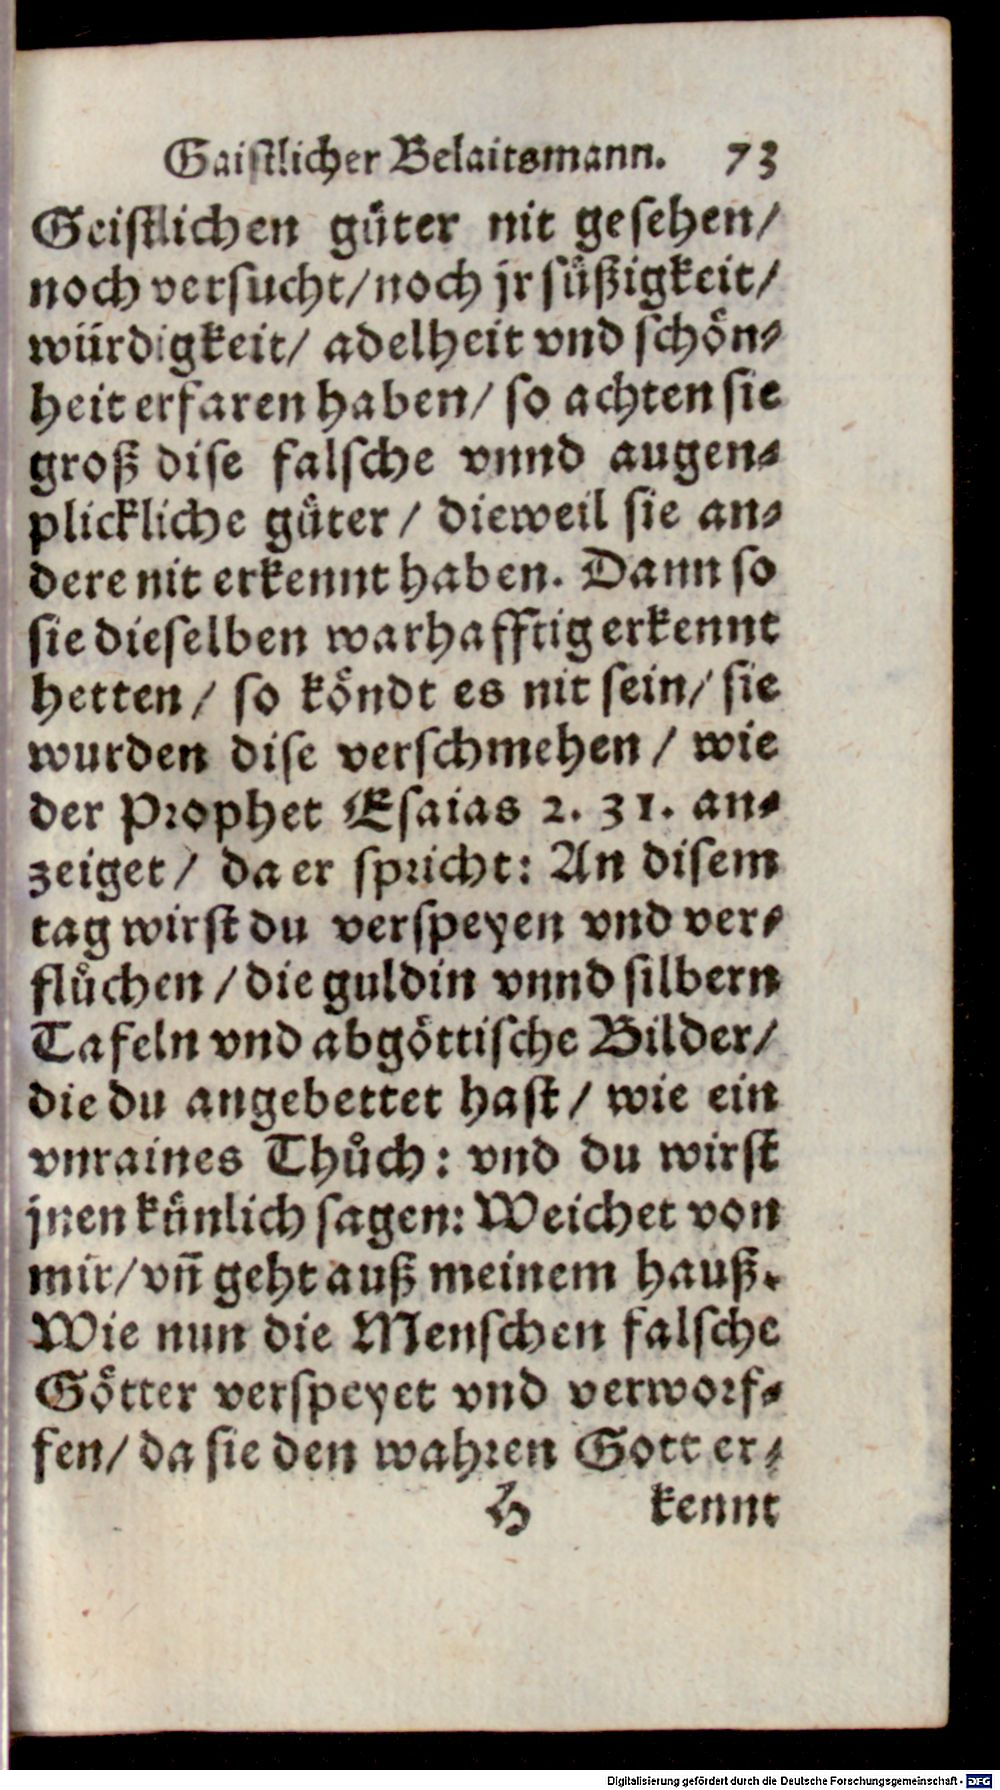 Gaistlicher Belaitsmann. 73
Geistlichen gůter nit gesehen/
noch versucht/ noch jr süßigkeit/
würdigkeit/ adelheit vnd schön⸗
heit erfaren haben/ so achten sie
groß dise falsche vnnd augen⸗
plickliche gůter / dieweil sie an⸗
dere nit erkennt haben. Dann so
sie dieselben warhafftig erkennt
hetten / so köndt es nit sein/ sie
wurden dise verschmehen / wie
der Prophet Esaias 2. 31. an⸗
zeiget / da er spricht: An disem
tag wirst du verspeyen vnd ver⸗
flůchen / die guldin vnnd silbern
Tafeln vnd abgöttische Bilder/
die du angebettet hast / wie ein
vnraines Thůch: vnd du wirst
jnen künlich sagen: Weichet von
mir/ vñ geht auß meinem hauß.
Wie nun die Menschen falsche
Götter verspeyet vnd verworf⸗
fen/ da sie den wahren Gott er⸗
H kennt
Digitalisierung gefördert durch die Deutsche Forschungsgemeinschaft - DFG